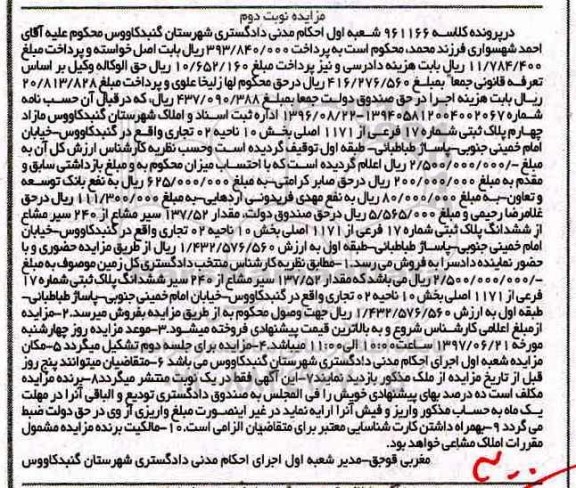 مزایده نوبت دوم
درپرونده کلاسه ۹۶۱۱۶۶ شعبه اول احکام مدنی دادگستری شهرستان گنبدکاووس محکوم علیه آقای
احمد شهسواری فرزند محمد، محکوم است به پرداخت ۳۹۳/۸۴۰/۰۰۰ ریال بابت اصل خواسته و پرداخت مبلغ
۱۱/۷۸۴/۴۰۰ ریال بابت هزینه دادرسی و نیز پرداخت مبلغ ۱۰/۶۵۲/۱۶۰ ریال حق الوکاله وکیل بر اساس
تعرفه قانونی جمعا" بمبلغ ۴۱۶/۲۷۶/۵۶۰ ریال درحق محکوم لها زلیخا علوی و پرداخت مبلغ ۲۰/۸۱۳/۸۲۸
ریال بابت هزینه اجرا در حق صندوق دولت جمعا بمبلغ ۴۳۷/۰۹۰/۳۸۸ ریال، که درقبال آن حسب نامه
شماره ۱۳۹۴۰۵۸۱۲۰۰۴۰۰۲۰۶۷-۱۳۹۶/۰۸/۲۲ اداره ثبت اسناد و املاک شهرستان گنبدکاووس مازاد
چهارم پلاک ثبتی شماره ۱۷ فرعی از ۱۱۷۱ اصلی بخش ۱۰ ناحیه ۰۲ تجاری واقع در گنبدکاووس-خیابان
امام خمینی جنوبی-پاساژ طباطبائی- طبقه اول توقیف گردیده است وحسب نظریه کارشناس ارزش کل آن به
مبلغ -/۲/۵۰۰/۰۰۰/۰۰۰ ریال اعلام گردیده است که با احتساب میزان محکوم به و مبلغ بازداشتی سابق و
مقدم به مبلغ ۲۰۰/۰۰۰/۰۰۰ ریال درحق صابر کرامتی-به مبلغ ۶۲۵/۰۰۰/۰۰۰ ریال به نفع بانک توسعه
و تعاون-به مبلغ ۸۰/۰۰۰/۰۰۰ ریال به نفع مهدی فریدونی اردهایی-به مبلغ ۱۱۱/۳۰۰/۰۰۰ ریال درحق
غلامرضا رحیمی و مبلغ ۵/۵۶۵/۰۰۰ ریال درحق صندوق دولت، مقدار ۱۳۷/۵۲ سیر مشاع از ۲۴۰ سیر مشاع
از ششدانگ پلاک ثبتی شماره ۱۷ فرعی از ۱۱۷۱ اصلی بخش ۱۰ ناحیه ۰۲ تجاری واقع در گنبدکاووس-خیابان
امام خمینی جنوبی-پاساژ طباطبائی-طبقه اول به ارزش ۱/۴۳۲/۵۷۶/۵۶۰ ریال از طریق مزایده حضوری و با
حضور نماینده دادسرا به فروش می رسد.۱-مطابق نظریه کارشناس منتخب دادگستری کل زمین موصوف به مبلغ
-/۲/۵۰۰/۰۰۰/۰۰۰ ریال می باشد که مقدار ۱۳۷/۵۲ سیر مشاع از ۲۴۰ سیر ششدانگ پلاک ثبتی شماره ۱۷
فرعی از ۱۱۷۱ اصلی بخش ۱۰ ناحیه ۰۲ تجاری واقع در گنبدکاووس-خیابان امام خمینی جنوبی-پاساژ طباطبائی-
طبقه اول به ارزش ۱/۴۳۲/۵۷۶/۵۶۰ ریال جهت وصول محکوم به از طریق مزایده بفروش میرسد.۲-مزایده
ازمبلغ اعلامی کارشناس شروع و به بالاترین قیمت پیشنهادی فروخته میشود.۳-موعد مزایده روز چهارشنبه
مورخه ۱۳۹۷/۰۶/۲۱ ساعت ۱۰:۰۰ الی ۱۱:۰۰ میباشد.۴-مزایده برای جلسه دوم تشکیل میگردد ۵-مکان
مزایده شعبه اول اجرای احکام مدنی دادگستری شهرستان گنبدکاووس می باشد ۶-متقاضیان میتوانند پنج روز
قبل از تاریخ مزایده از ملک مذکور بازدید نمایند۷-این آگهی فقط در یک نوبت منتشر میگردد۸-برنده مزایده
مکلف است ده درصد بهای پیشنهادی خویش را فی المجلس به صندوق دادگستری تودیع و الباقی آنرا در مهلت
یک ماه به حساب مذکور واریز و فیش آنرا ارایه نماید در غیر اینصورت مبلغ واریزی از وی در حق دولت ضبط
می گردد ۹-بهمراه داشتن کارت شناسایی معتبر برای متقاضیان الزامی است.۱۰-مالکیت برنده مزایده مشمول
مقررات املاک مشاعی خواهد بود.
مغربی قوجق-مدیر شعبه اول اجرای احکام مدنی دادگستری شهرستان گنبدکاووس